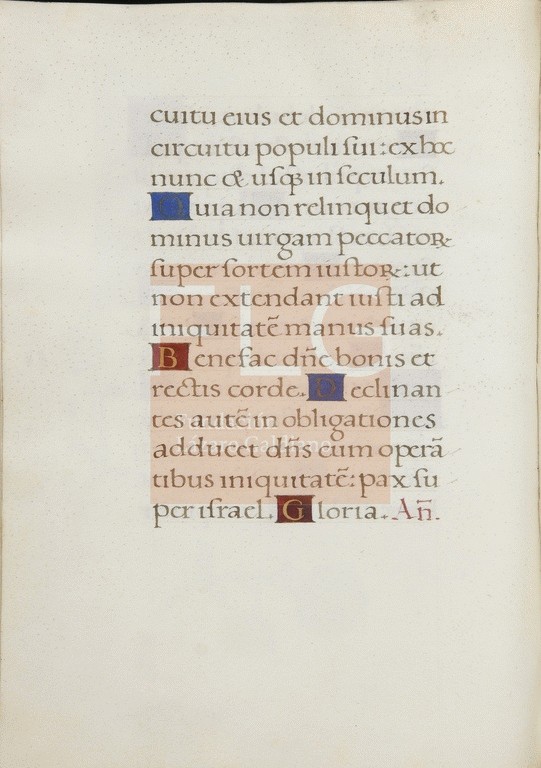 cuitu eius et dominus in
circuitu populi sui: ex hoc
nunc & usq; in seculum.
Quia non relinquet do
minus uirgam peccatoꝝ
super sortem iustoꝝ: ut
non extendant iusti ad
iniquitatē manus suas.
Benefac dñe bonis et
rectis corde. Declinan
tes autē in obligationes
adducet dñs cum operā
tibus iniquitatē: pax su
per israel. Gloria. Añ.
FLG
Fundación
Lázaro Galdiano